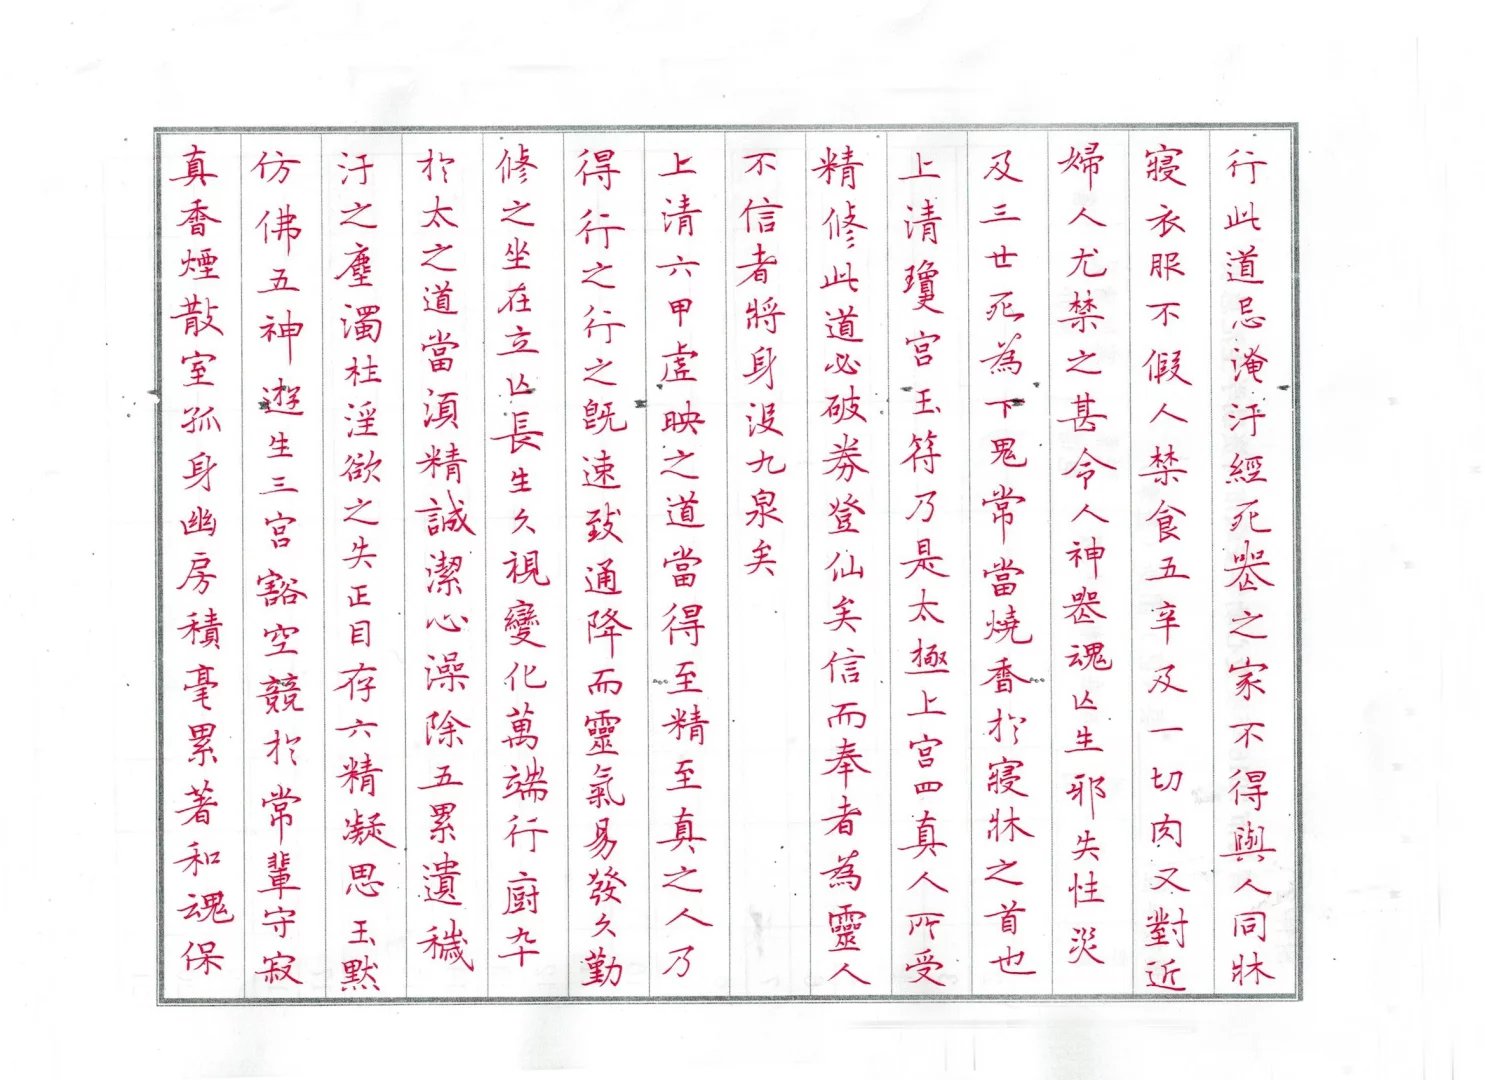 行此道忌淹汙經死器之家不得與人同牀
寢衣服不假人禁食五辛及一切肉又對近
婦人尤禁之甚令人神器魂亾生邪失性災
及三世死為下鬼常當燒香於寢牀之首也
上清瓊宮玉符乃是太極上宮四真人所受
精修此道必破券登仙矣信而奉者為靈人
不信者將身沒九泉矣
上清六甲虛映之道當得至精至真之人乃
得行之行之旣速致通降而靈氣易發久勤
修之坐在立亾長生久視變化萬端行廚卒
於太之道當須精誠潔心澡除五累遺穢
汙之塵濁杜淫欲之失正目存六精凝思玉黙
仿佛五神遊生三宮豁空競於常輩守寂
真香煙散室孤身幽房積毫累著和魂保